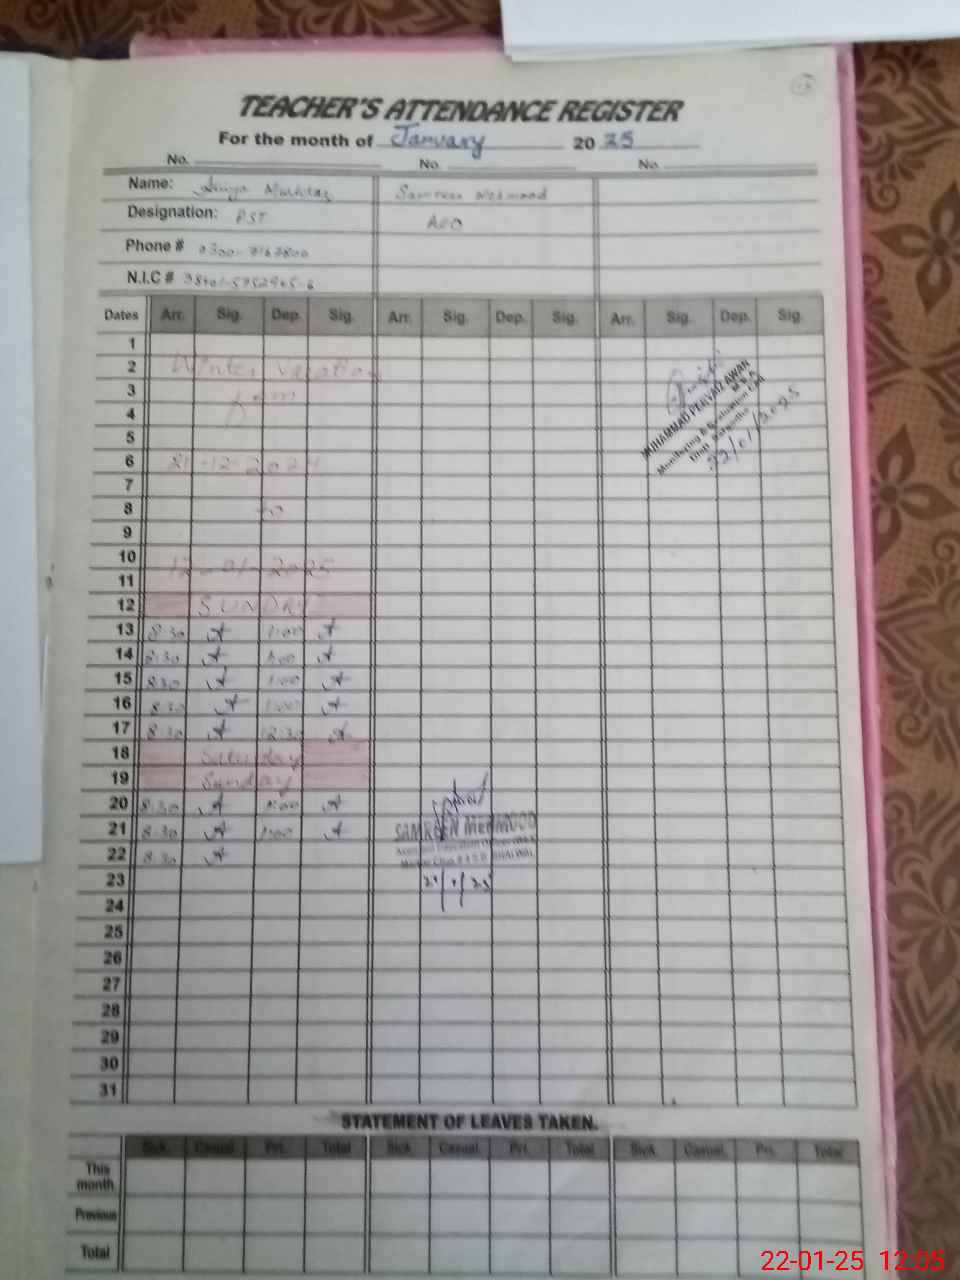 TEACHER'S ATTENDANCE REGISTER
For the month of January 2025
No. No. No.
Name: Samreen Mehmood
Designation: PST AEO
Phone #
N.I.C #
Dates Arr. Sig. Dep. Sig. Arr. Sig. Dep. Sig. Arr. Sig. Dep. Sig.
1
2 Winter vacation
3 from
4
5
6 21-12-2024
7
8 to
9
10 12-01-2025
11
12 SUNDAY
13 8:30 A 1:00 A
14 8:30 A 1:00 A
15 8:30 A 1:00 A
16 8:30 A 1:00 A
17 8:30 A 12:30 A
18 Saturday
19 Sunday
20 8:30 A 1:00 A
21 8:30 A 1:00 A
22 8:30 A
23
24
25
26
27
28
29
30
31
MUHAMMAD PERVAIZ AWAN
Monitoring & Evaluation
22/01/2025
SAMREEN MEHMOOD
Assistant Education Officer
STATEMENT OF LEAVES TAKEN.
Sick. Casual. Pri. Total Sick. Casual. Pri. Total Sick. Casual. Pri. Total
This month.
Previous
Total
22-01-25 12:05